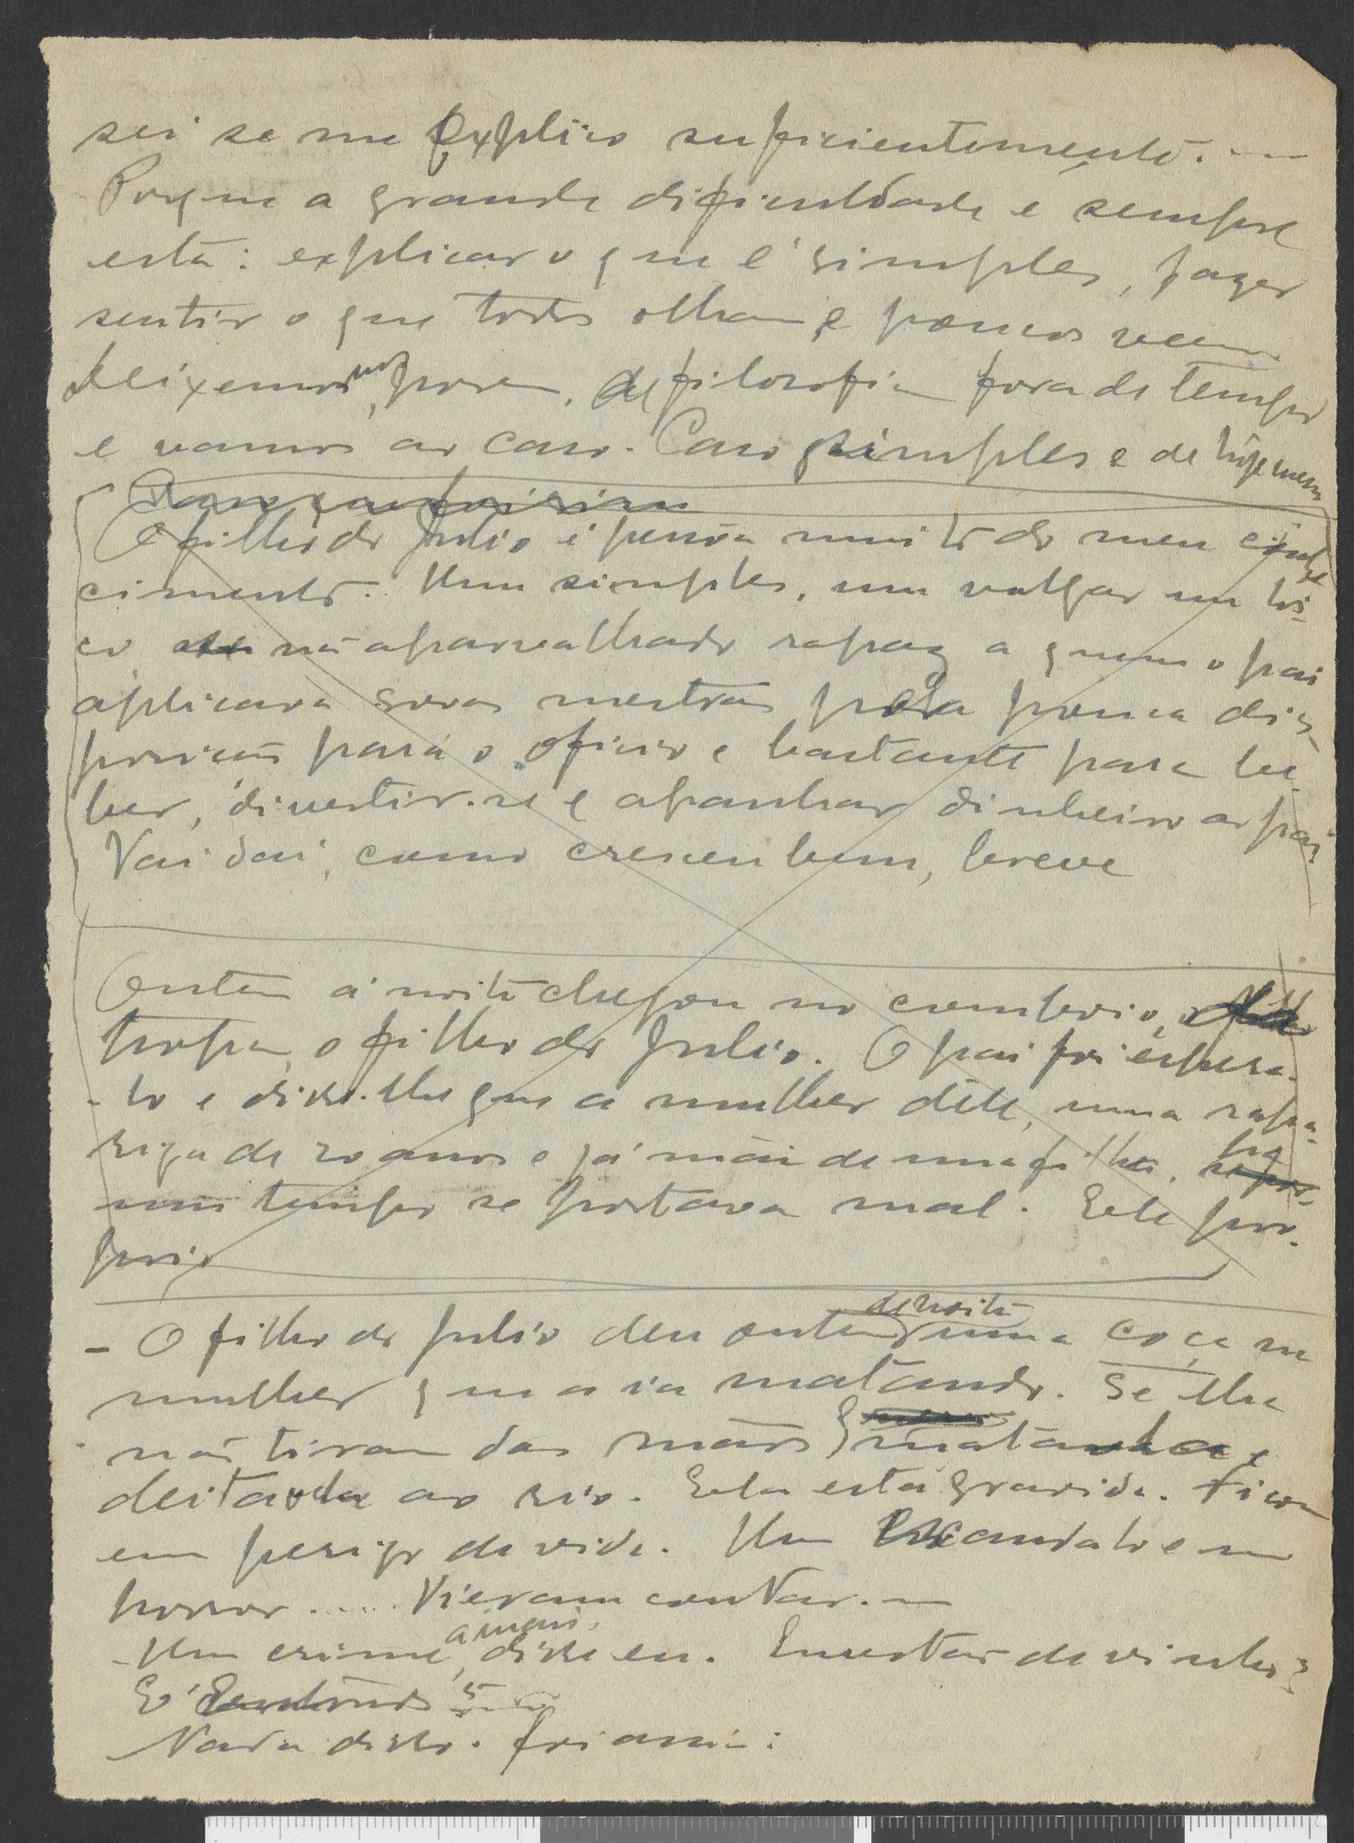 sei se me explico suficientemente. —
Porque a grande dificuldade é sempre
esta: explicar o que é simples, fazer
sentir o que todos olham e poucos veem
Deixemos nos, porem, de filosofia fora de tempo
e vamos ao caso. Caso simples e de hoje mesmo
O filho do Julio é pessôa muito do meu conhe
cimento. Um simples, um vulgar um tos-
co, não aparvalhado rapaz a quem o pai
aplicava sovas mestras pela pouca dis-
posição para o oficio e bastante para be-
ber, divertir-se e apanhar dinheiro ao pai
Vai dai, como cresceu bem, breve
Ontem á noite chegou no comboio, o
tropa, o filho do Julio. O pai foi espera-
-lo e disse-lhe que a mulher dêle, uma rapa-
riga de 20 anos e já mãi de uma filha, ha
muito tempo se portava mal. Ele pro-
prio
- O filho do Julio deu ontem de noite uma coça na
mulher que a ia matando. Se lha
não tiram das mãos matava-a e
deitava-a ao rio. Ela está gravida. Ficou
em perigo de vida. Um escandalo e um
horror..... Vieram contar. —
- Um crime, a meu, disse eu. Questão de vinho?
E'
Nada disso. Foi assim: